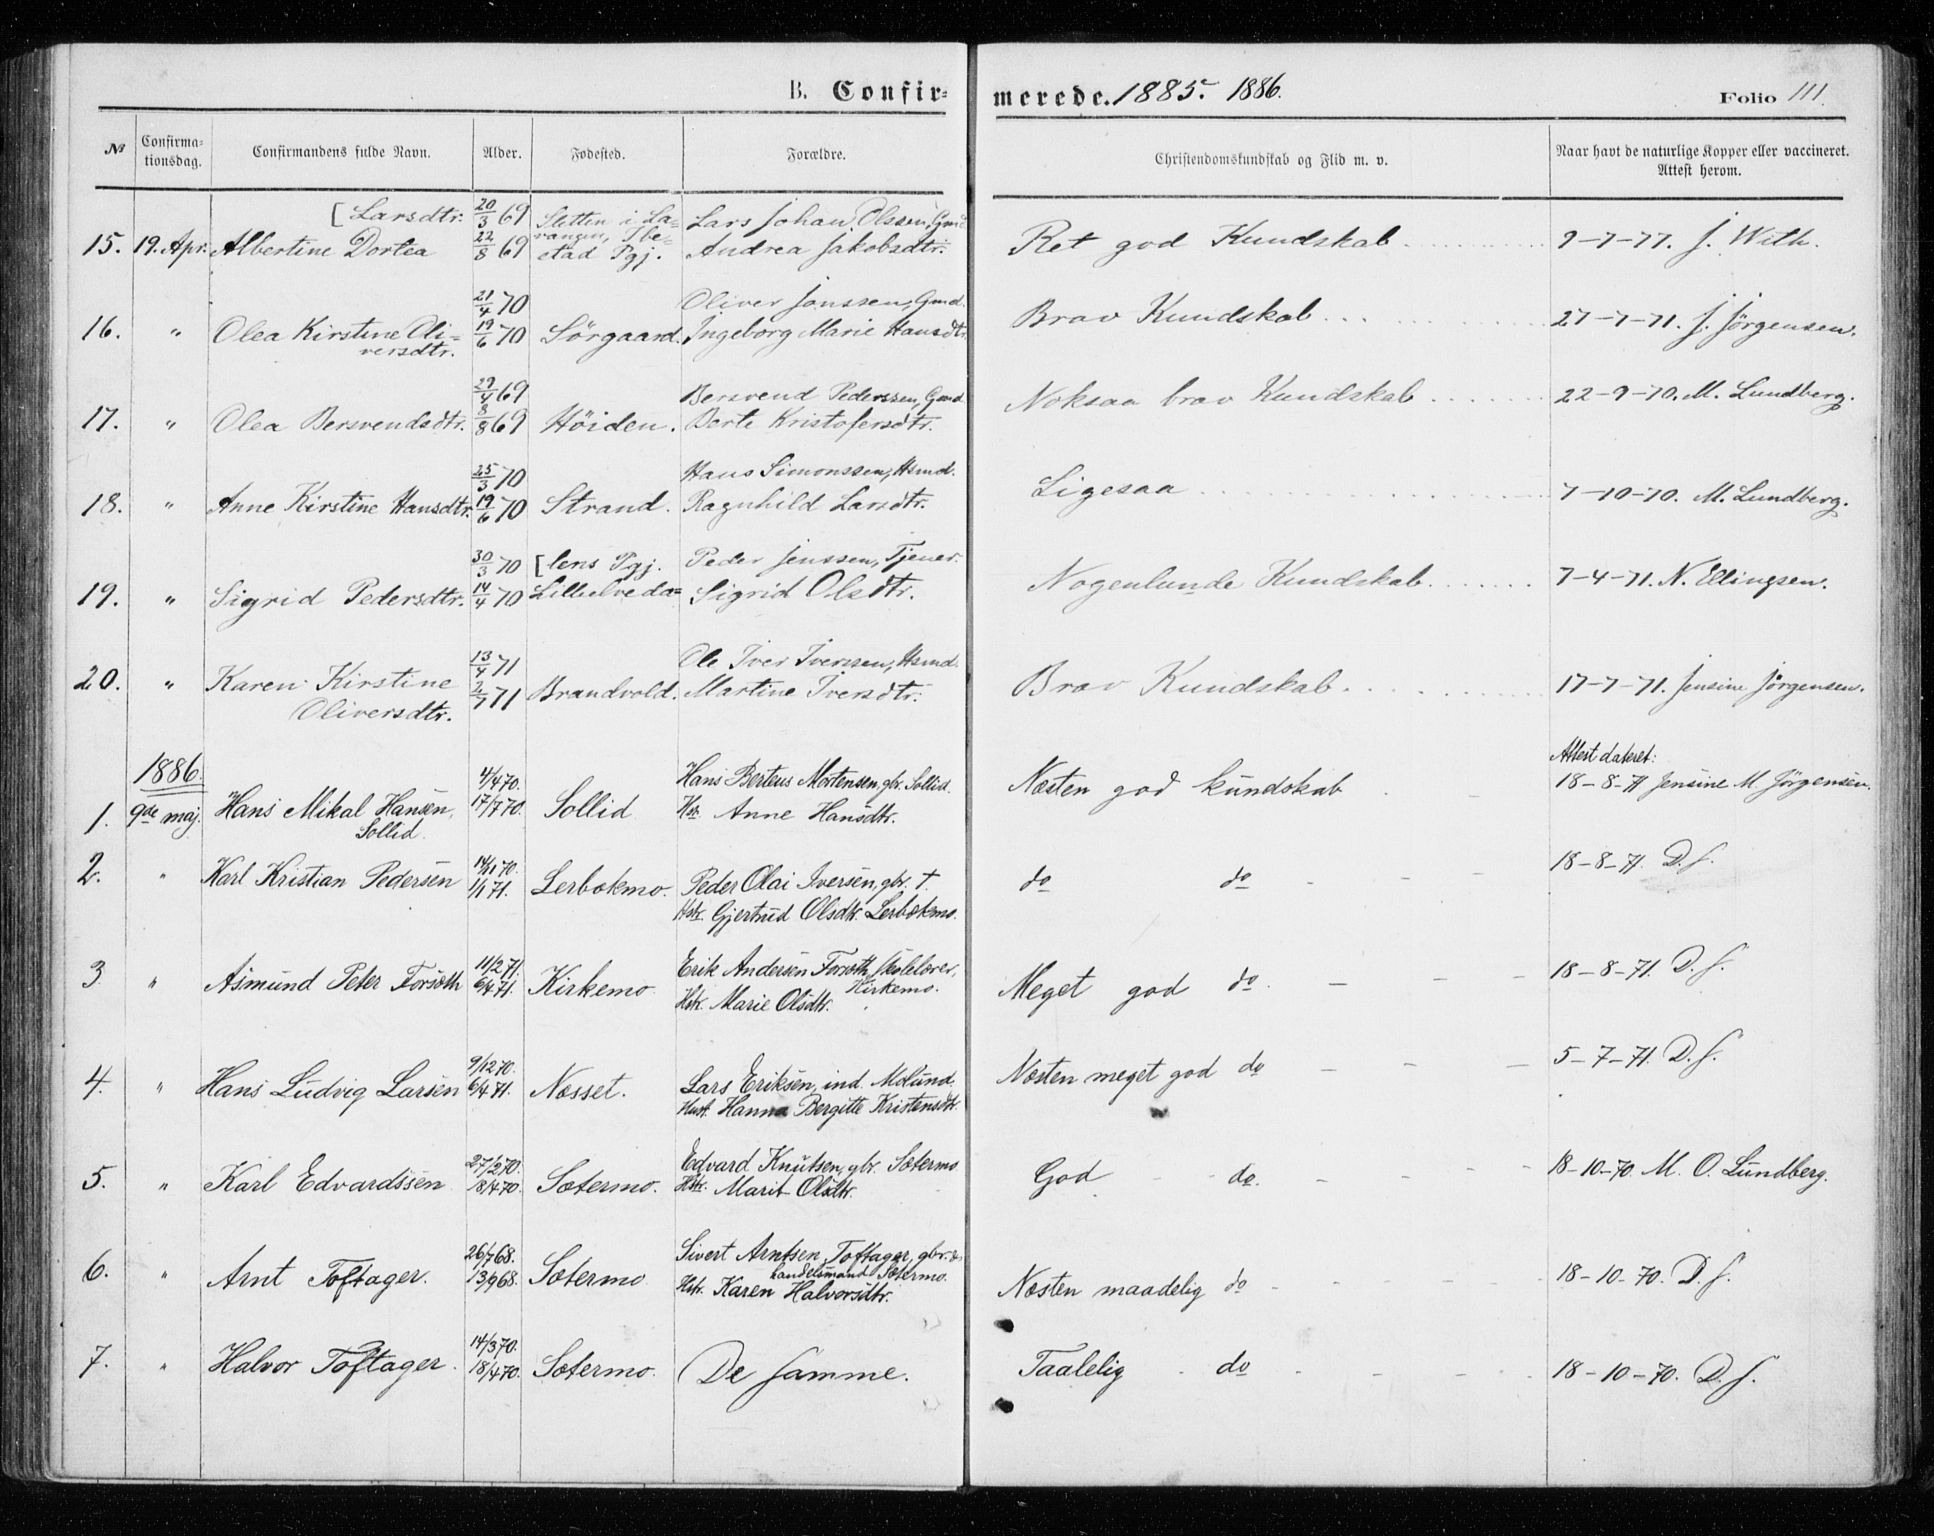 B. Confir=
merede. 1885. 1886.
Folio 111.
No
Confirma-
tionsdag.
Confirmandens fulde Navn.
Alder.
Fødested.
Forældre.
Christendomskundskab og Flid m. v.
Naar havt de naturlige Kopper eller vaccineret.
Attest herom.
[Larsdtr. 20/3 69 Sletten i La- Lars Johan Olssen, Gmd
vangen, Ibe-
15. 19. Apr. Albertine Dortea 22/8 69 stad Pgj. Andrea Jakobsdtr. Ret god Kundskab 9-7-77. J. With.
21/4 70 Oliver Jonssen, Gmd.
16. " Olea Kirstine Oli- 19/6 70 Sörgaard. Ingeborg Marie Hansdtr. Brav Kundskab 27-7-71. J. Jörgensen.
versdtr.
29/4 69 Bersvend Pederssen, Gmd.
17. " Olea Bersvendsdtr. 8/8 69 Höiden. Berte Kristofersdtr. Noksaa brav Kundskab 22-9-70. M. Lundberg.
25/3 70 Hans Simonssen, Hsmd.
18. " Anne Kirstine Hansdtr. 19/6 70 Strand. Ragnhild Larsdtr. Ligesaa 7-10-70. M. Lundberg.
30/3 70 [lens Pgj. Peder Jenssen, Tjener.
19. " Sigrid Pedersdtr. 14/4 70 Lilleelveda= Sigrid Olsdtr. Nogenlunde Kundskab 7-4-71. N. Ellingsen.
13/4 71 Ole Iver Iverssen, Hsmd.
20. " Karen Kirstine 2/7 71 Brandvold. Martine Iversdtr. Brav Kundskab 17-7-71. Jensine Jörgensen.
Oliversdtr.
1886. Attest dateret:
4/4 70. Hans Berteus Mortensen, gbr. Sollid.
1. 9de maj. Hans Mikal Hansen, 17/7 70. Sollid Hstr. Anne Hansdtr. Næsten god kundskab 18-8-71 Jensine M. Jörgensen.
Sollid.
14/11 70.
2. " Karl Kristian Pedersen 1/1 71. Lerbækmo. Peder Olai Iversen, gbr. † do do 18-8-71. D. S.
Hstr. Gjertrud Olsdtr. Lerbækmo.
11/2 71. Erik Andersen Forsæth, skolelærer,
3 " Asmund Peter Forsæth 6/4 71. Kirkemo. Kirkemo. Meget god do. 18-8-71. D. S.
Hstr. Marie Olsdtr.
9/12 70.
4. " Hans Ludvig Larsen 6/4 71. Næsset. Lars Eriksen, ind. Molund. Næsten meget god do 5-7-71. D. S.
Hust. Hanna Bergitte Kristensdtr.
27/2 70. Edvard Knutsen, gbr. Sætermo
5. " Karl Edvardssen 18/4 70. Sætermo. Hstr. Marit Olsdtr. God do. 18-10-70. M. O. Lundberg.
26/7 68. Sivert Arntsen Toftager, gbr. &
6. " Arnt Toftager. 13/9 68. Sætermo handelsmand Sætermo. Næsten maadelig do 18-10-70. D. S.
Hstr. Karen Halvorsdtr.
14/3 70.
7. " Halvor Toftager. 18/4 70. Sætermo. De samme. Taalelig do 18-10-70. D. S.